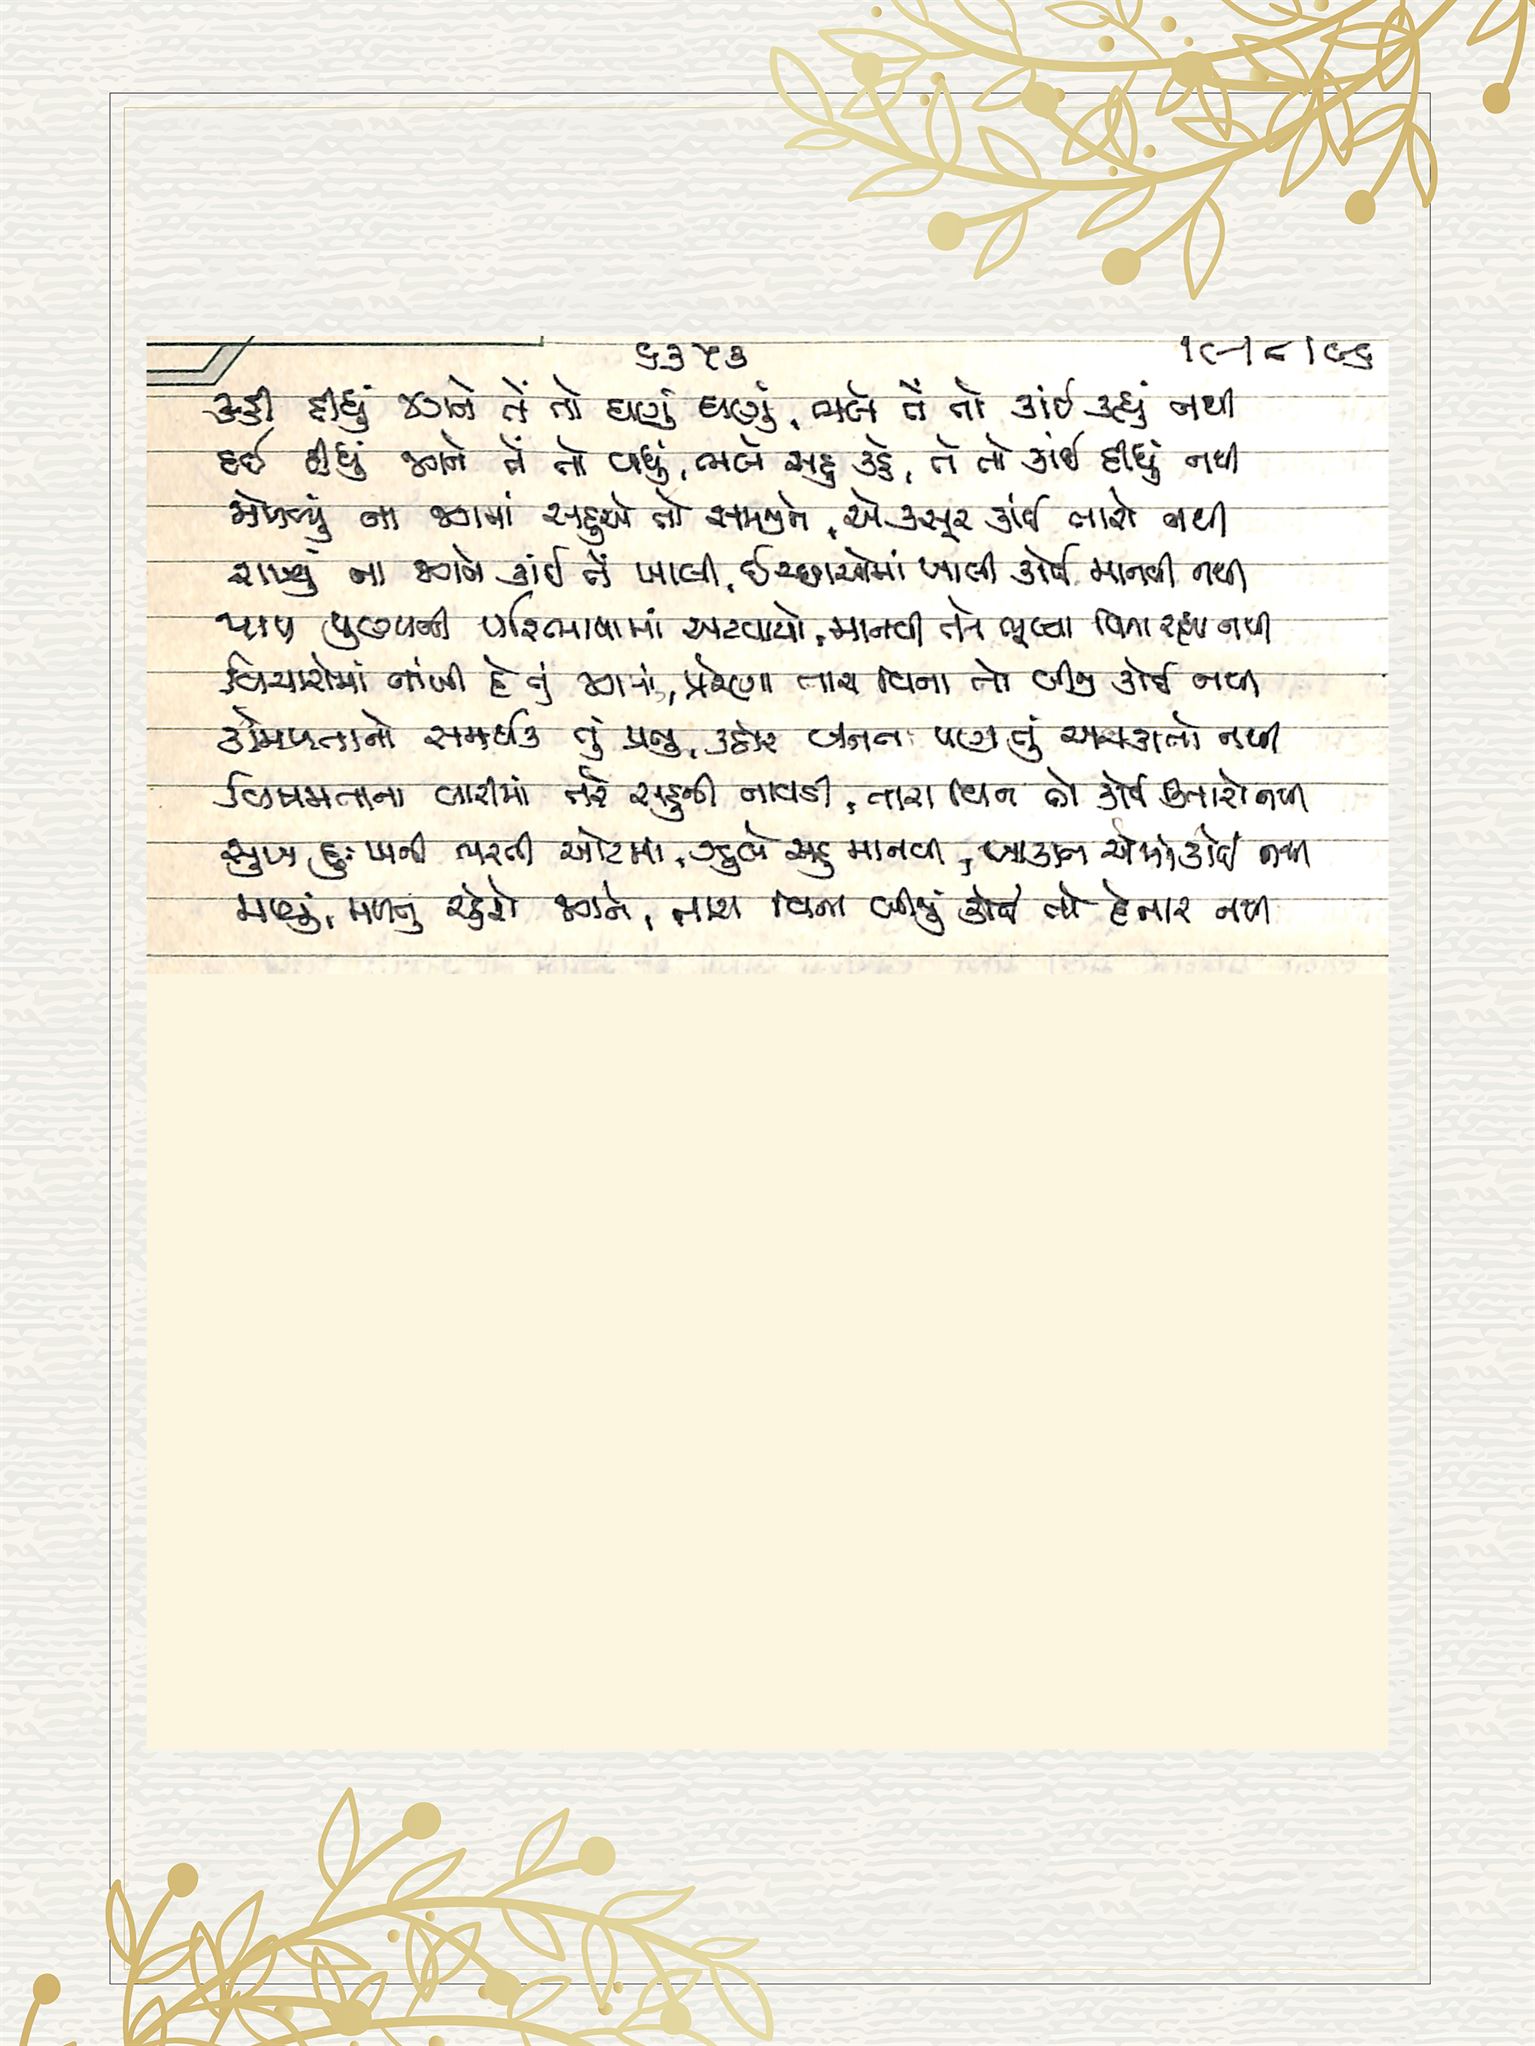 ૬૩૫૩ ૧૯-૮-૧૯૯૬
કહી દીધું જગને તેં તો ઘણું ઘણું, ભલે તેં તો કાંઈ કહ્યું નથી
દઈ દીધું જગને તેં તો બધું, ભલે સહુ કહે, તેં તો કાંઈ દીધું નથી
મેળવ્યું ના જગમાં સહુએ તો સમજીને, એ કસૂર કાંઈ તારો નથી
રાખ્યું ના જગને કાંઈ તેં ખાલી, ઈચ્છાઓમાં ખાલી કોઈ માનવી નથી
પાપ પુણ્યની પરિભાષામાં અટવાયો, માનવી તને ભૂલ્યા વિના રહ્યા નથી
વિચારોમાં નાંખી દે તું જગમાં, પ્રેરણા તારા વિના તો બીજી કોઈ નથી
કોમળતાનો સમર્થક તું પ્રભુ, કઠોર બનતા પણ તું અચકાતો નથી
વિષમતાના વારિમાં તરે સહુની નાવડી, તારા વિના તો કોઈ કિનારો નથી
સુખ દુઃખની ભરતી ઓટમાં, ઝૂલે સહુ માનવી, બાકાત એમાં કોઈ નથી
મળ્યું, મળતું રહેશે જગને, તારા વિના બીજું કોઈ તો દેનાર નથી